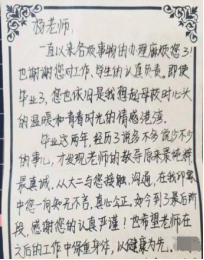 杨老师,
一直以来各种事的办理麻烦您了,
也谢谢您对工作、学生的认真负责。即使
毕业了,您也依旧是我想起母校时心头
的温暖和青春时光的情感港湾。
毕业这两年,经历了说多不多说少不少
的事儿,才发现老师的教导原来是
最真诚。从大二与您接触、沟通,在我印象
中您一向知无不言,真心公正。如今到了最后阶
段,感谢您的认真严谨!也希望老师在
之后的工作中保重身体,以健康为先。